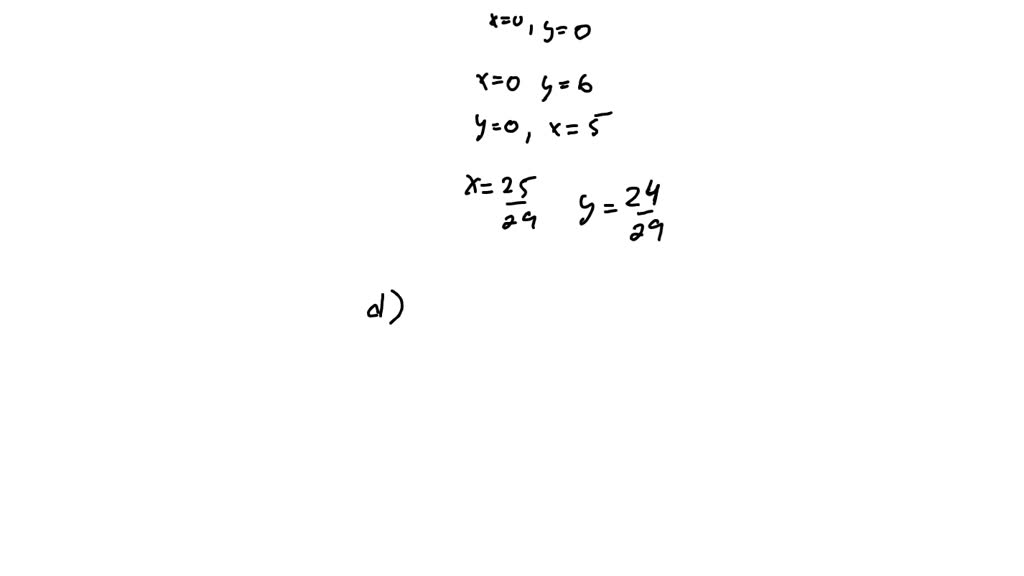 x=0, y=0
x=0 y=6
y=0, x=5
x=25/29 y=24/29
d)